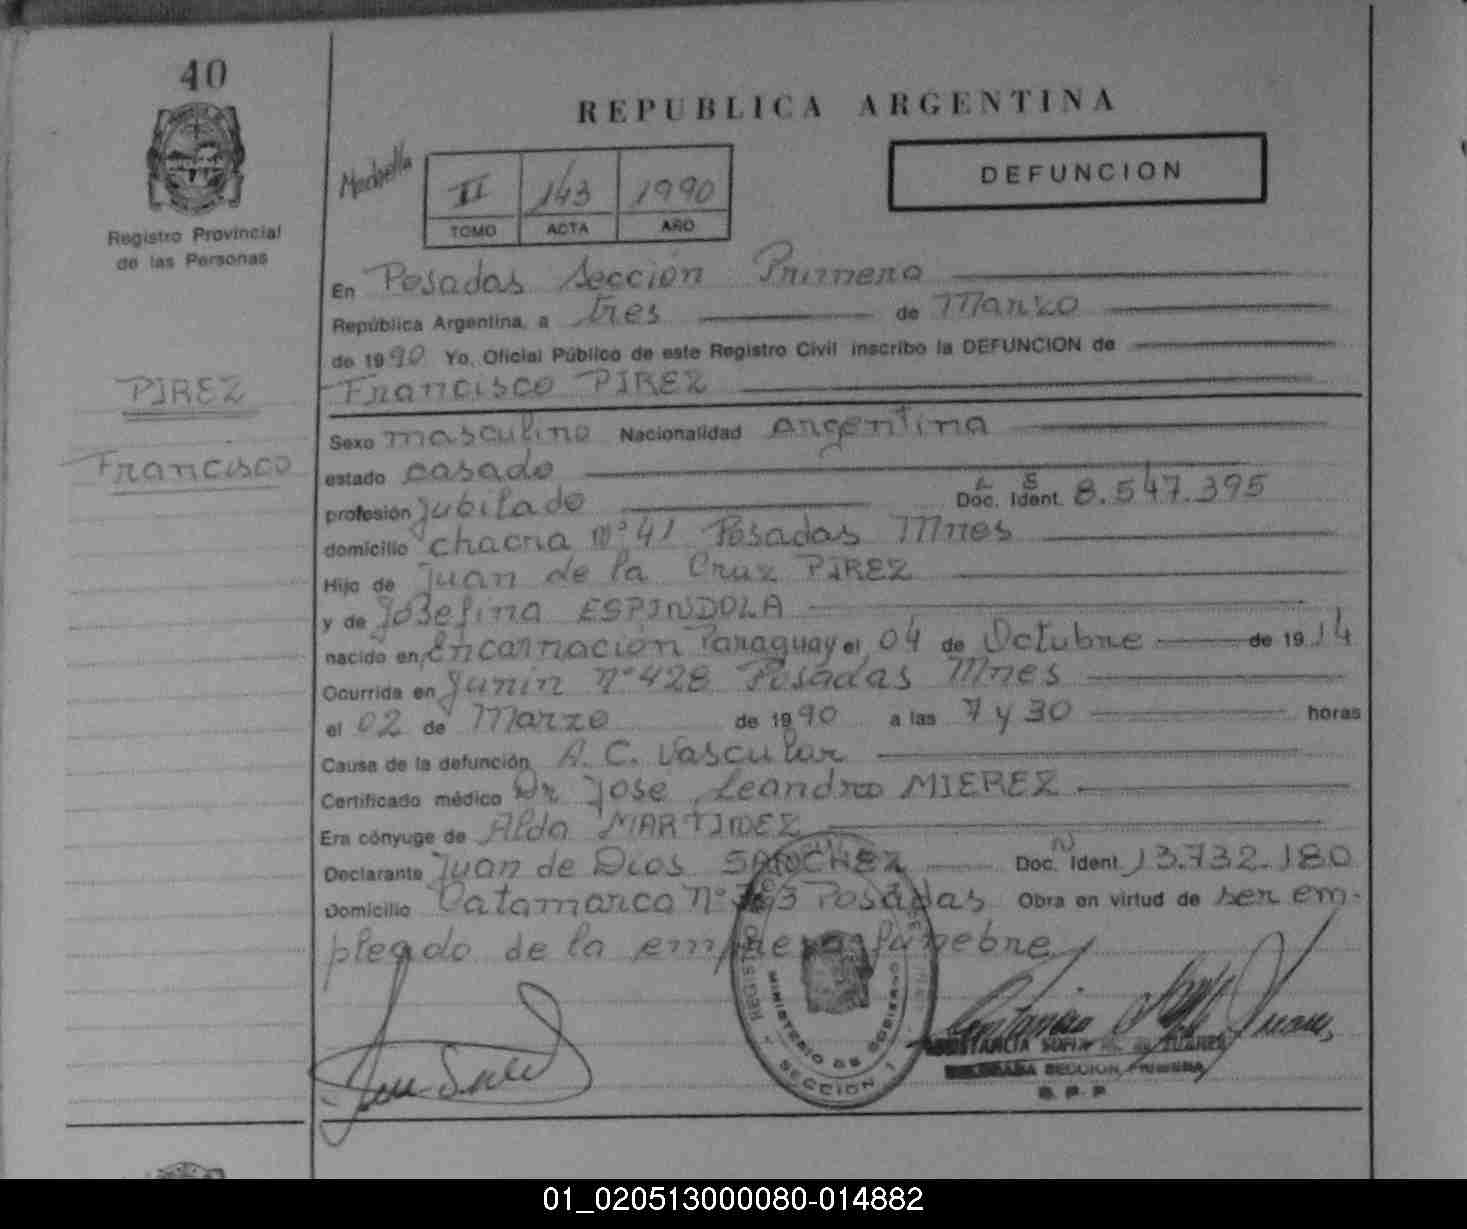 40
Registro Provincial
de las Personas
REPUBLICA ARGENTINA
Marbella
II 143 1990
TOMO ACTA AÑO
DEFUNCION
En Posadas Sección Primera
República Argentina, a tres de Marzo
de 1990 Yo, Oficial Público de este Registro Civil inscribo la DEFUNCION de
Francisco PIREZ
PIREZ
Francisco
Sexo masculino Nacionalidad Argentina
estado casado
L E
profesión jubilado Doc. Ident. 8.547.395
domicilio chacra Nº 41 Posadas Mnes
Hijo de Juan de la Cruz PIREZ
y de Josefina ESPINDOLA
nacido en Encarnación Paraguay el 04 de Octubre de 1914
Ocurrida en Junin nº 428 Posadas Mnes
el 02 de Marzo de 1990 a las 7 y 30 horas
Causa de la defunción A. C. Vascular
Certificado médico Dr José Leandro MIEREZ
Era cónyuge de Alda MARTINEZ
N
Declarante Juan de Dios SANCHEZ Doc. Ident. 13.732.180
Domicilio Catamarca Nº Posadas Obra en virtud de ser em-
pleado de la empresa funebre
MINISTERIO DE GOBIERNO
SECCION 1
SOFIA JUAREZ
SECCION PRIMERA
R. P. P.
01_020513000080-014882